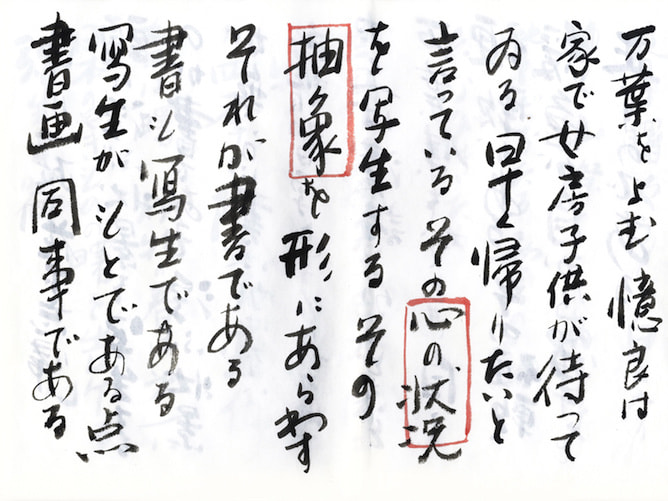 万葉をよむ 憶良は
家で女房子供が待って
ゐる 早く帰りたいと
言っている その心の状況
を写生する その
抽象を形にあらわす
それが書である
書も写生である
写生がもとである点
書画同事である